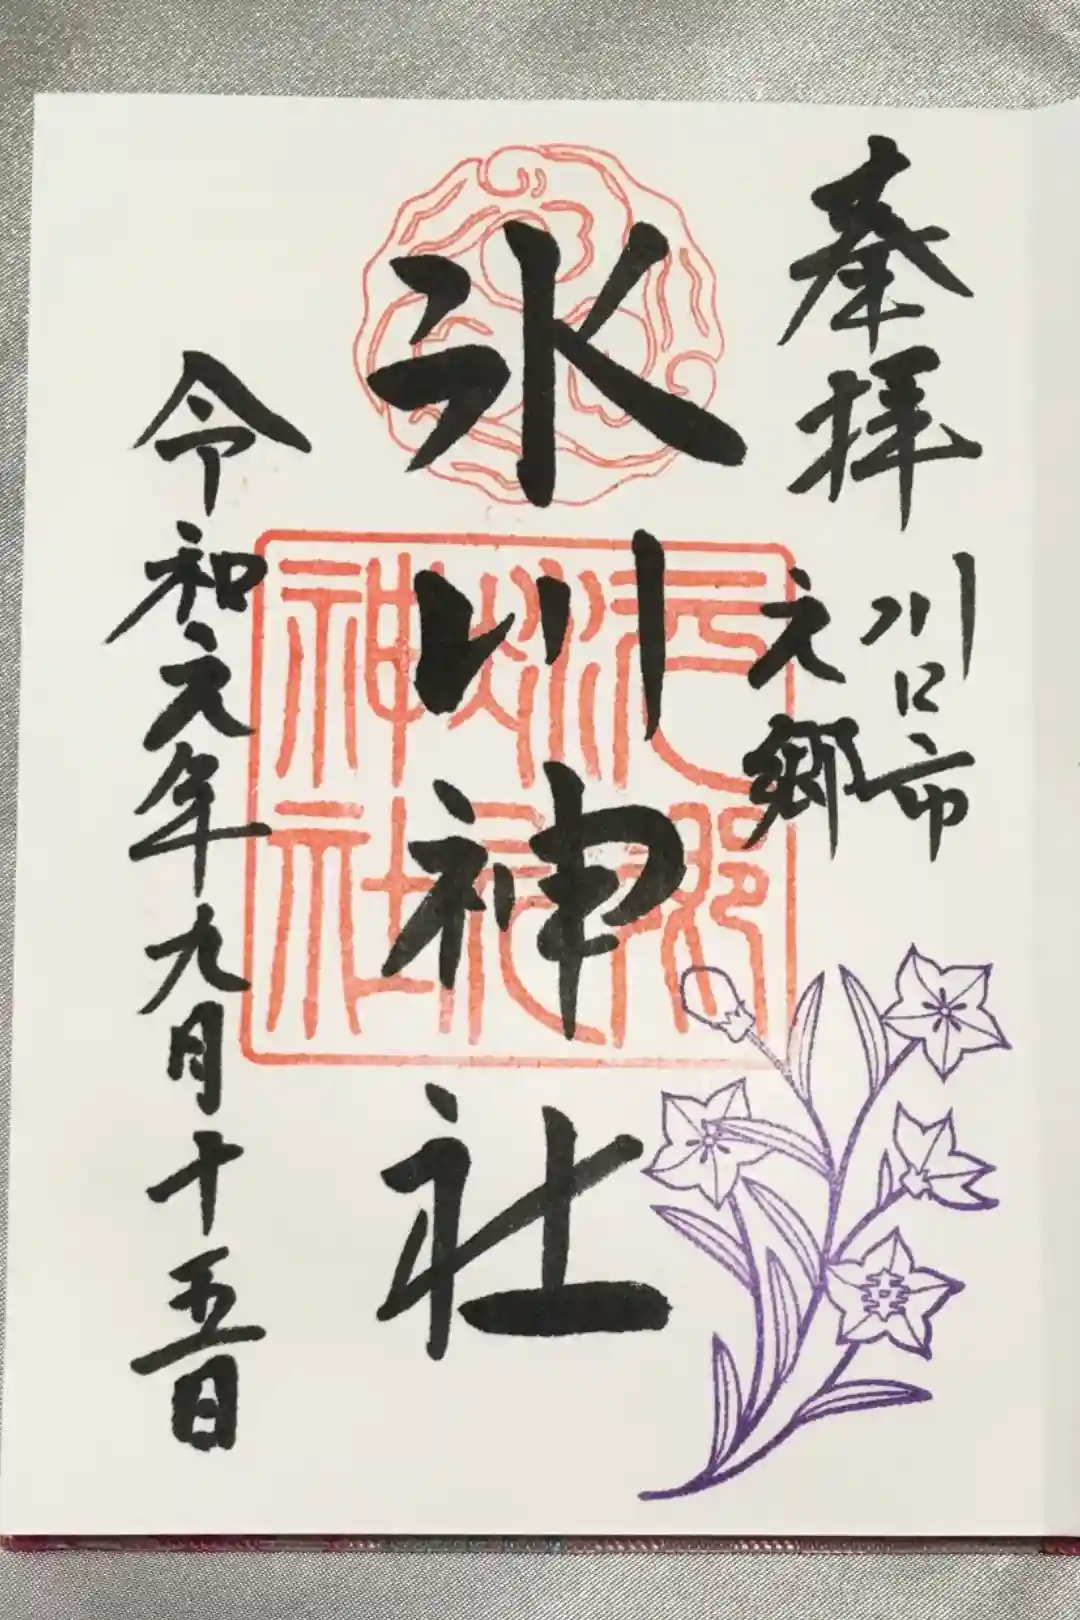 奉拝
川口市
元郷
氷川神社
令和元年九月十五日
神社